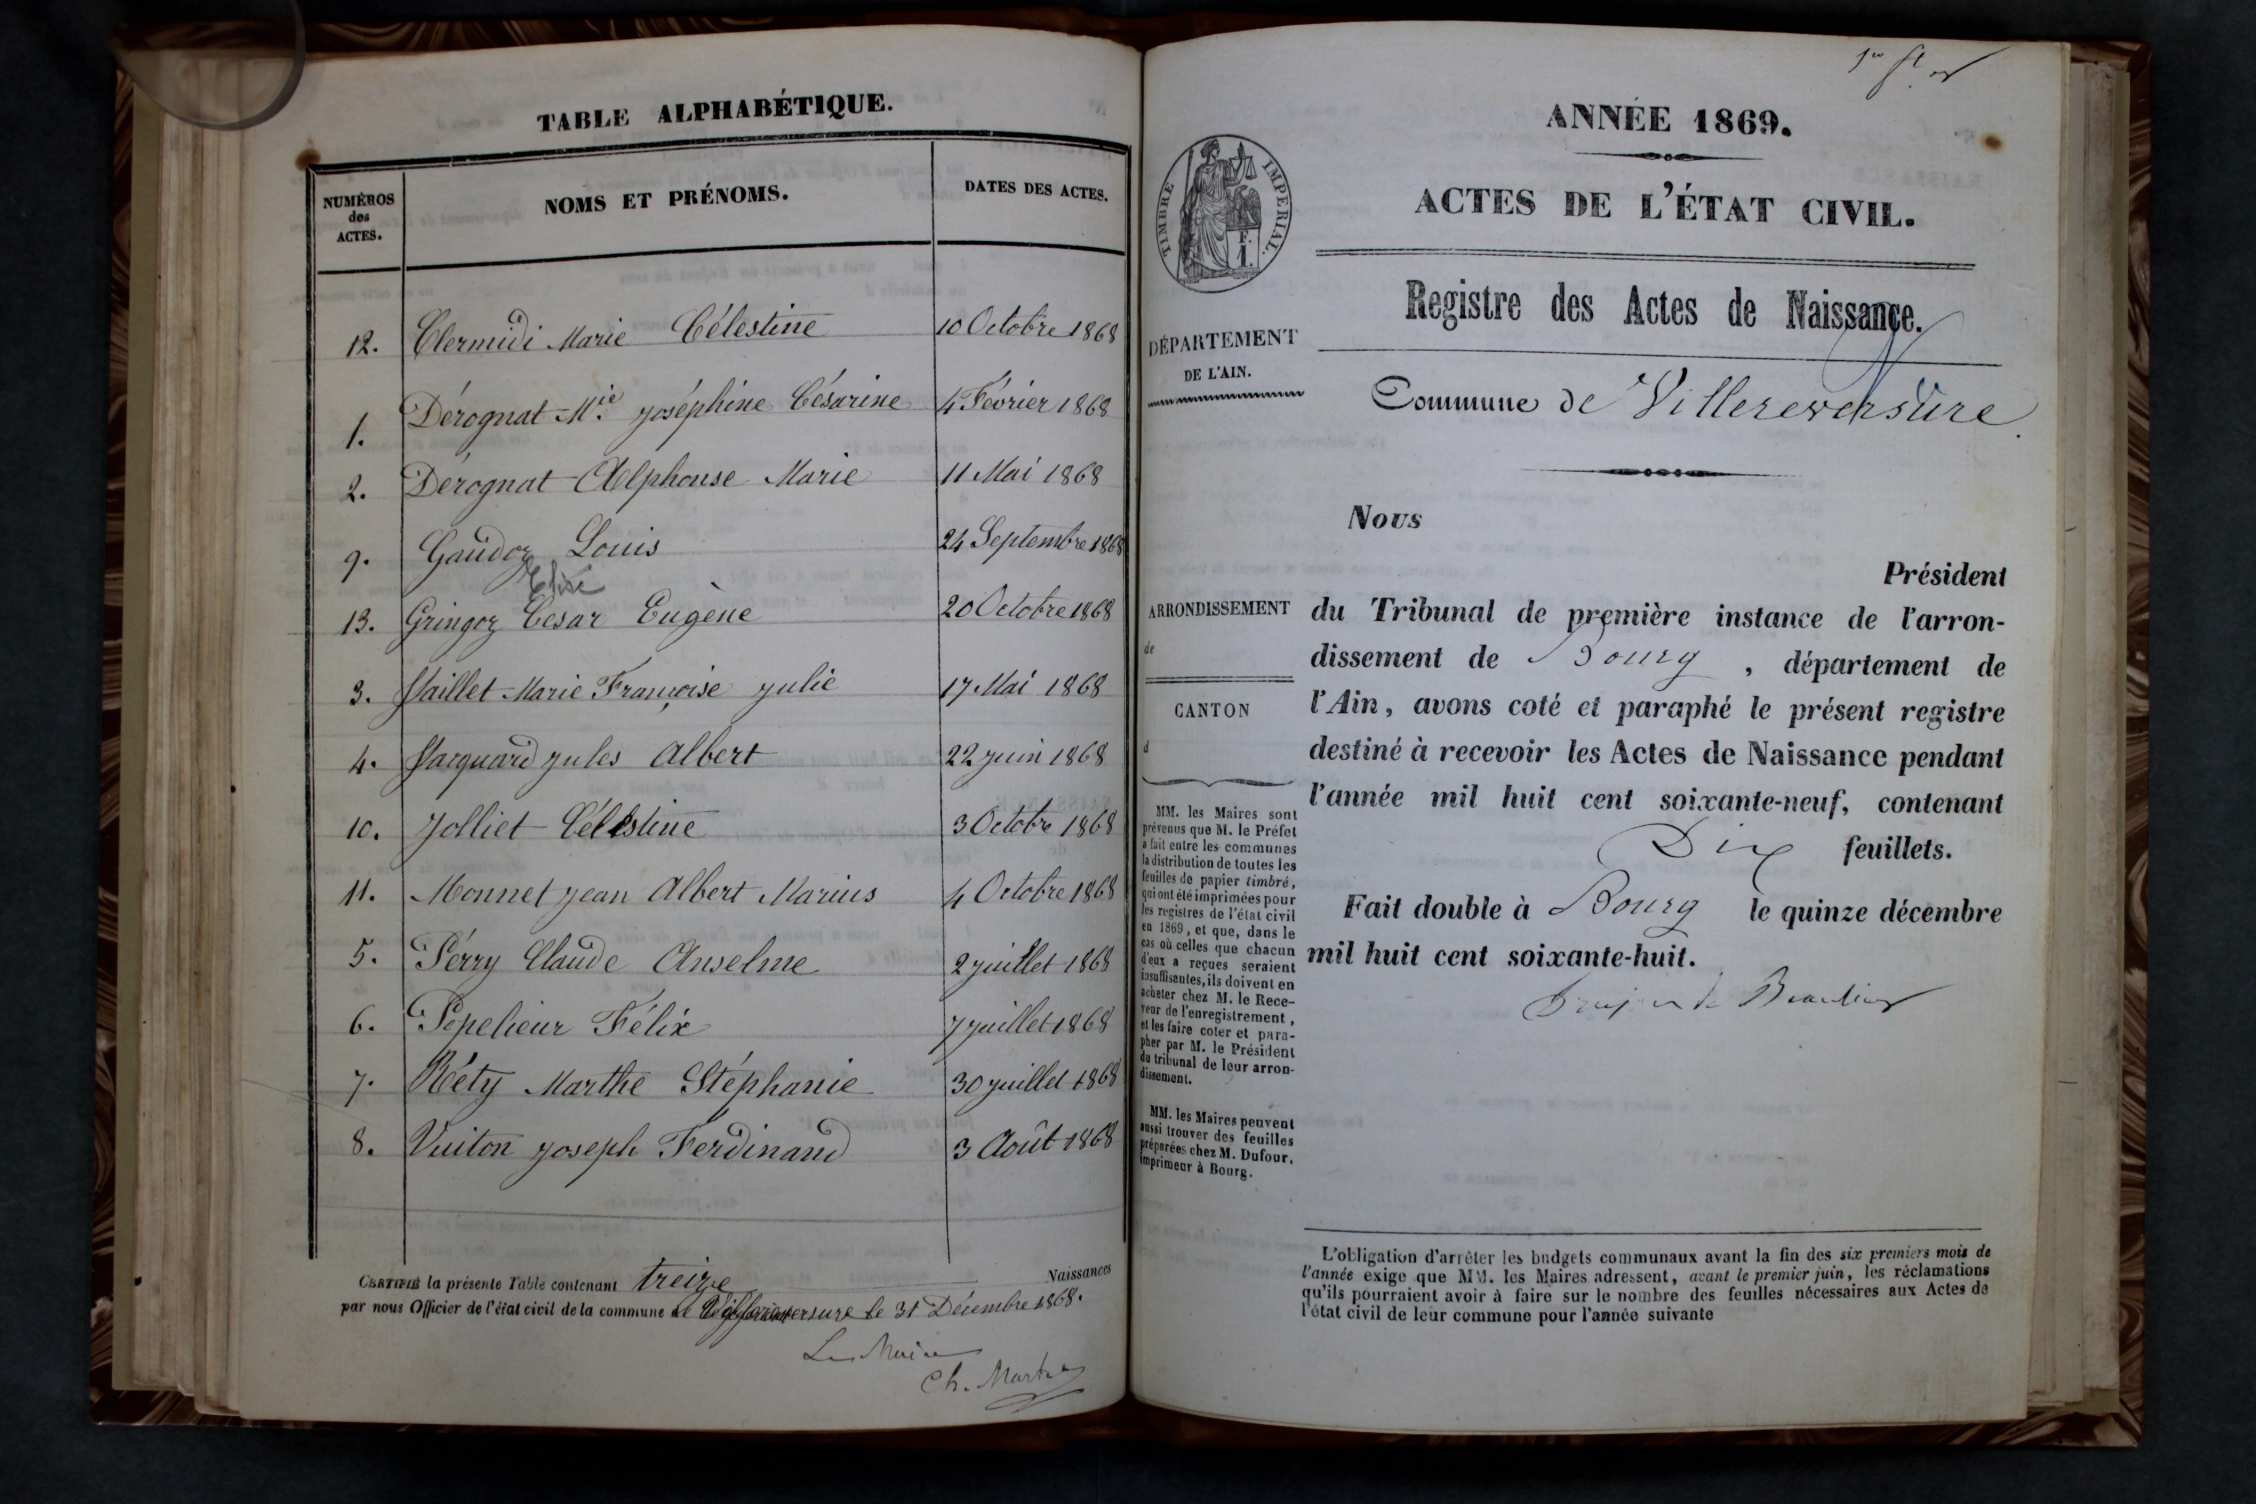 TABLE ALPHABÉTIQUE.
NUMÉROS des ACTES.
NOMS ET PRÉNOMS.
DATES DES ACTES.
12. Clermidi Marie Célestine 10 Octobre 1868
1. Dérognat Mie Joséphine Césarine 4 Février 1868
2. Dérognat Alphonse Marie 11 Mai 1868
9. Gaudoz Louis 24 Septembre 1868
Elisé
13. Gringoz César Eugène 20 Octobre 1868
3. Jaillet Marie Françoise Julie 17 Mai 1868
4. Jacquard Jules Albert 22 Juin 1868
10. Jolliet Célestine 3 Octobre 1868
11. Monnet Jean Albert Marius 4 Octobre 1868
5. Pérry Claude Anselme 2 Juillet 1868
6. Pépelieur Félix 7 Juillet 1868
7. Réty Marthe Stéphanie 30 Juillet 1868
8. Vuiton Joseph Ferdinand 3 Août 1868
CERTIFIÉ la présente Table contenant treize Naissances
par nous Officier de l'état civil de la commune de le 31 Décembre 1868.
Le Maire
Ch. Martin
ANNÉE 1869.
ACTES DE L'ÉTAT CIVIL.
Registre des Actes de Naissance.
Commune de Villereversure.
Nous
Président
du Tribunal de première instance de l'arron-
dissement de Bourg, département de
l'Ain, avons coté et paraphé le présent registre
destiné à recevoir les Actes de Naissance pendant
l'année mil huit cent soixante-neuf, contenant
Dix feuillets.
Fait double à Bourg le quinze décembre
mil huit cent soixante-huit.
TIMBRE IMPÉRIAL.
F.
1.
DÉPARTEMENT
DE L'AIN.
ARRONDISSEMENT
de
CANTON
d
MM. les Maires sont
prévenus que M. le Préfet
a fait entre les communes
la distribution de toutes les
feuilles de papier timbré,
qui ont été imprimées pour
les registres de l'état civil
en 1869, et que, dans le
cas où celles que chacun
d'eux a reçues seraient
insuffisantes, ils doivent en
acheter chez M. le Rece-
veur de l'enregistrement,
et les faire coter et para-
pher par M. le Président
du tribunal de leur arron-
dissement.
MM. les Maires peuvent
aussi trouver des feuilles
préparées chez M. Dufour,
imprimeur à Bourg.
L'obligation d'arrêter les budgets communaux avant la fin des six premiers mois de
l'année exige que MM. les Maires adressent, avant le premier juin, les réclamations
qu'ils pourraient avoir à faire sur le nombre des feuilles nécessaires aux Actes de
l'état civil de leur commune pour l'année suivante